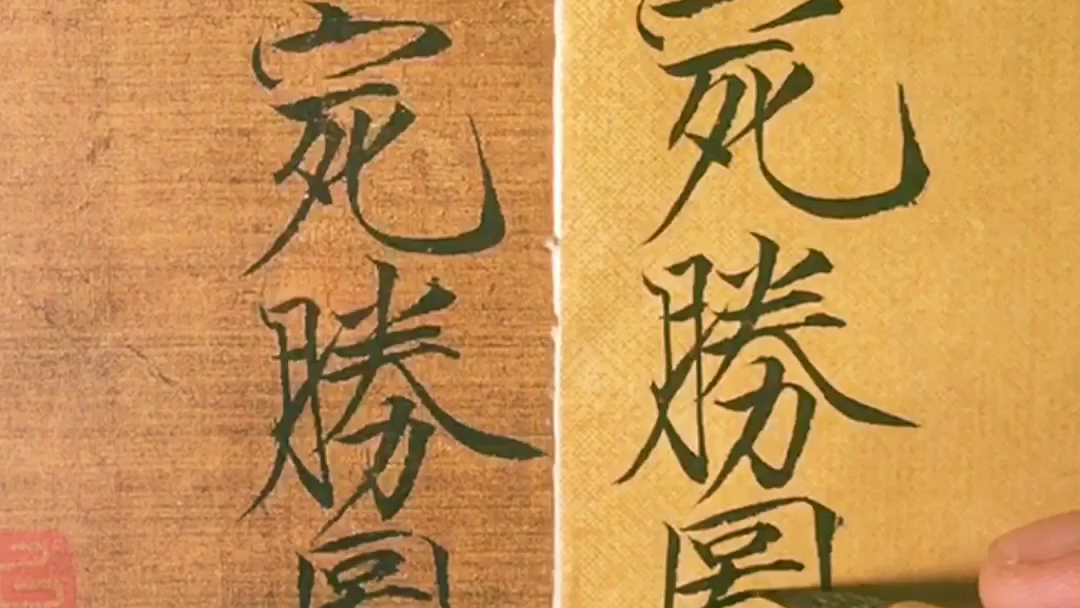 宛勝圖
宛勝圖